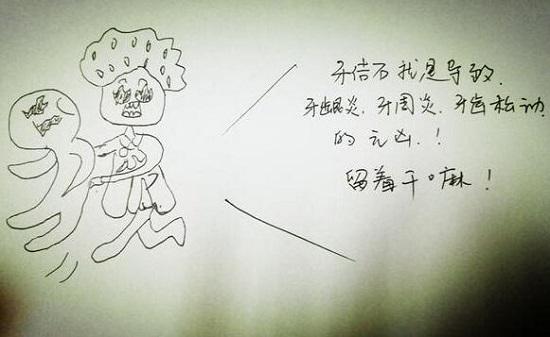 牙结石我是导致
牙龈炎.牙周炎.牙齿松动
的元凶.!
留着干嘛!